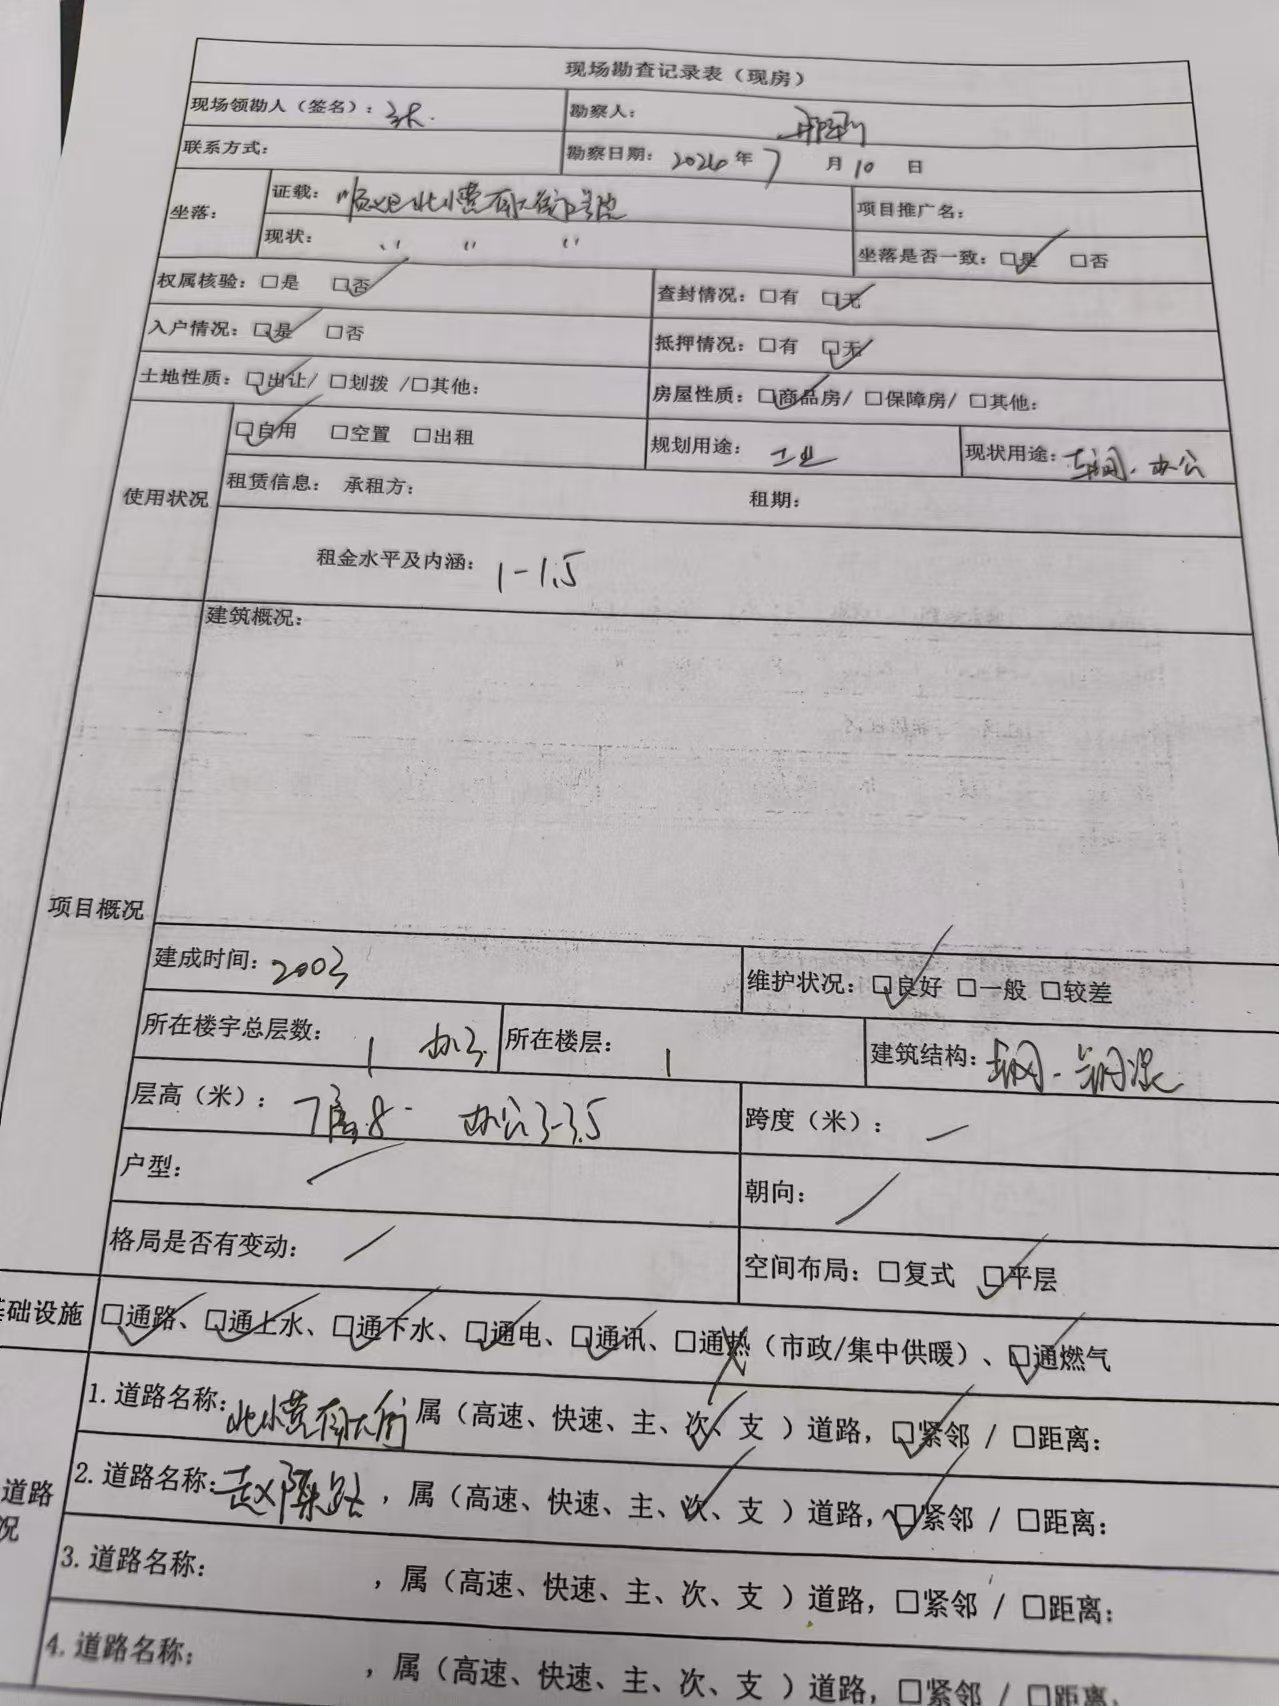 现场勘查记录表（现房）
现场领勘人（签名）：张 勘察人：
联系方式： 勘察日期：2026年7月10日
坐落： 证载：顺义区北小营府前大街 号院 项目推广名：
现状：〃 〃 〃 坐落是否一致：☑是 □否
权属核验：□是 ☑否 查封情况：□有 ☑无
入户情况：☑是 □否 抵押情况：□有 ☑无
土地性质：☑出让/ □划拨 /□其他： 房屋性质：☑商品房/ □保障房/ □其他：
使用状况 ☑自用 □空置 □出租 规划用途：工业 现状用途：车间、办公
租赁信息：承租方： 租期：
租金水平及内涵：1-1.5
项目概况 建筑概况：
建成时间：2003 维护状况：☑良好 □一般 □较差
所在楼宇总层数：1 办3 所在楼层：1 建筑结构：钢、钢混
层高（米）：厂房8 办公3-3.5 跨度（米）：/
户型：/ 朝向：/
格局是否有变动：/ 空间布局：□复式 ☑平层
基础设施 ☑通路、☑通上水、☑通下水、☑通电、☑通讯、□通热（市政/集中供暖）、☑通燃气
道路
况
1.道路名称：北小营 大街 属（高速、快速、主、次、支 ）道路，☑紧邻 / □距离：
2.道路名称：赵 路 ，属（高速、快速、主、次、支 ）道路，☑紧邻 / □距离：
3.道路名称： ，属（高速、快速、主、次、支 ）道路，□紧邻 / □距离：
4.道路名称： ，属（高速、快速、主、次、支 ）道路，□紧邻 / □距离：